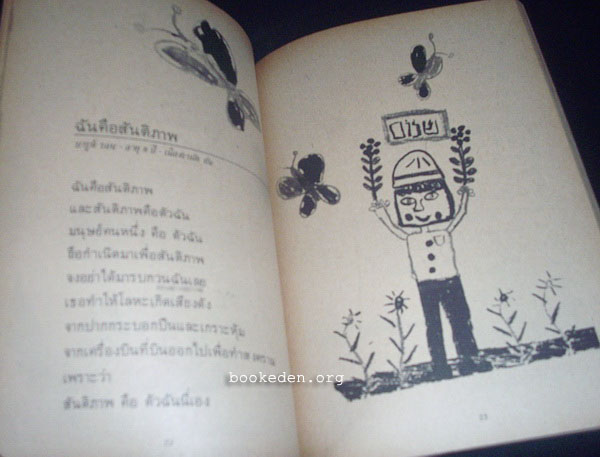 ฉันคือสันติภาพ
อายุ ๑ ปี
ฉันคือสันติภาพ
และสันติภาพคือตัวฉัน
มนุษย์คนหนึ่ง คือ ตัวฉัน
ถือกำเนิดมาเพื่อสันติภาพ
จงอย่าได้มารบกวนฉันเลย
เธอทำให้โลหะเกิดเสียงดัง
จากปากกระบอกปืนและเกราะหุ้ม
จากเครื่องบินที่บินออกไปเพื่อทำสงคราม
เพราะว่า
สันติภาพ คือ ตัวฉันนี่เอง
22
שלום
23
bookeden.org